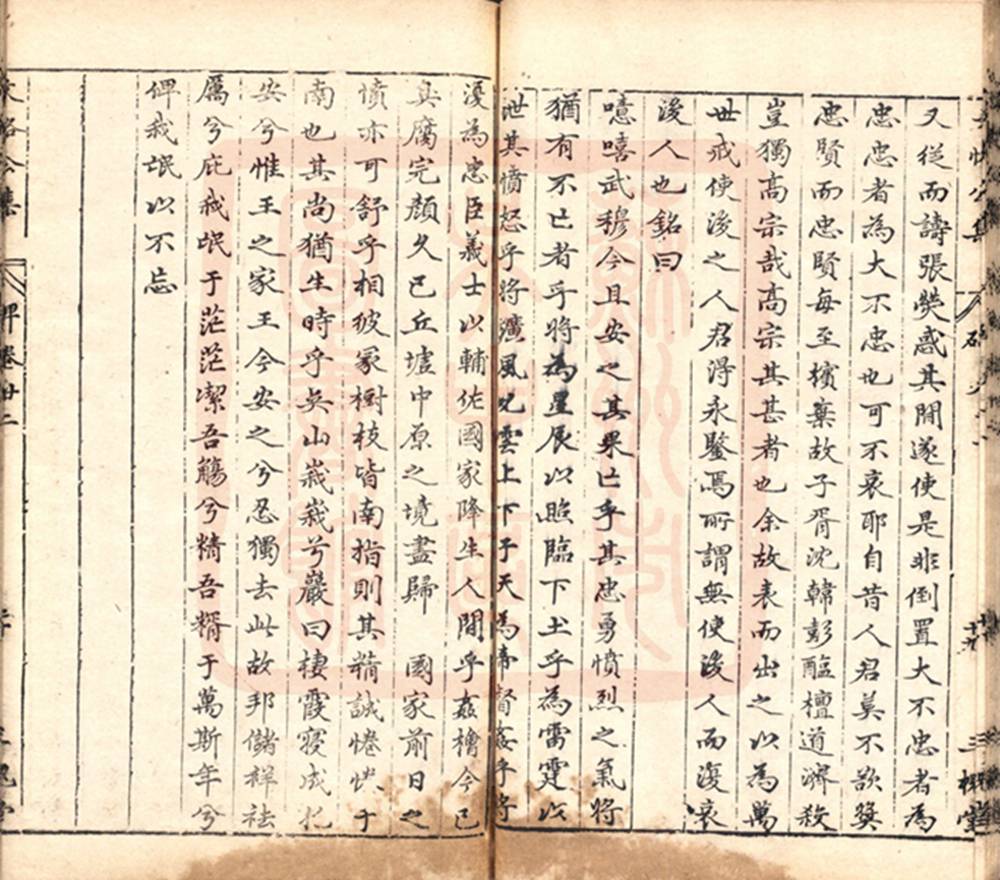 又從而譸張熒惑其間遂使是非倒置大不忠者為
忠忠者為大不忠也可不哀耶自昔人君莫不欲獎
忠賢而忠賢每至擯棄故子胥沈韓彭醢檀道濟殺
豈獨高宗哉高宗其甚者也余故表而出之以為萬
世戒使後之人君得永鑒焉所謂無使後人而復哀
後人也銘曰
噫嘻武穆今且安之其果亡乎其忠勇憤烈之氣將
猶有不亡者乎將為星辰以照臨下土乎為雷霆以
泄其憤怒乎將飆風兄雲上下于天為帝督姦乎將
復為忠臣義士以輔佐國家降生人間乎姦檜今已
臭腐完顏久已丘墟中原之境盡歸 國家前日之
憤亦可舒乎相彼冢樹枝皆南指則其精誠惓惓于
南也其尚猶生時乎吳山峩峩兮巖曰棲霞寢成孔
安兮惟王之家王今安之兮忍獨去此故邦儲祥祛
厲兮庇我氓于茫茫潔吾觴兮精吾糈于萬斯年兮
俾我氓以不忘
卷廿二